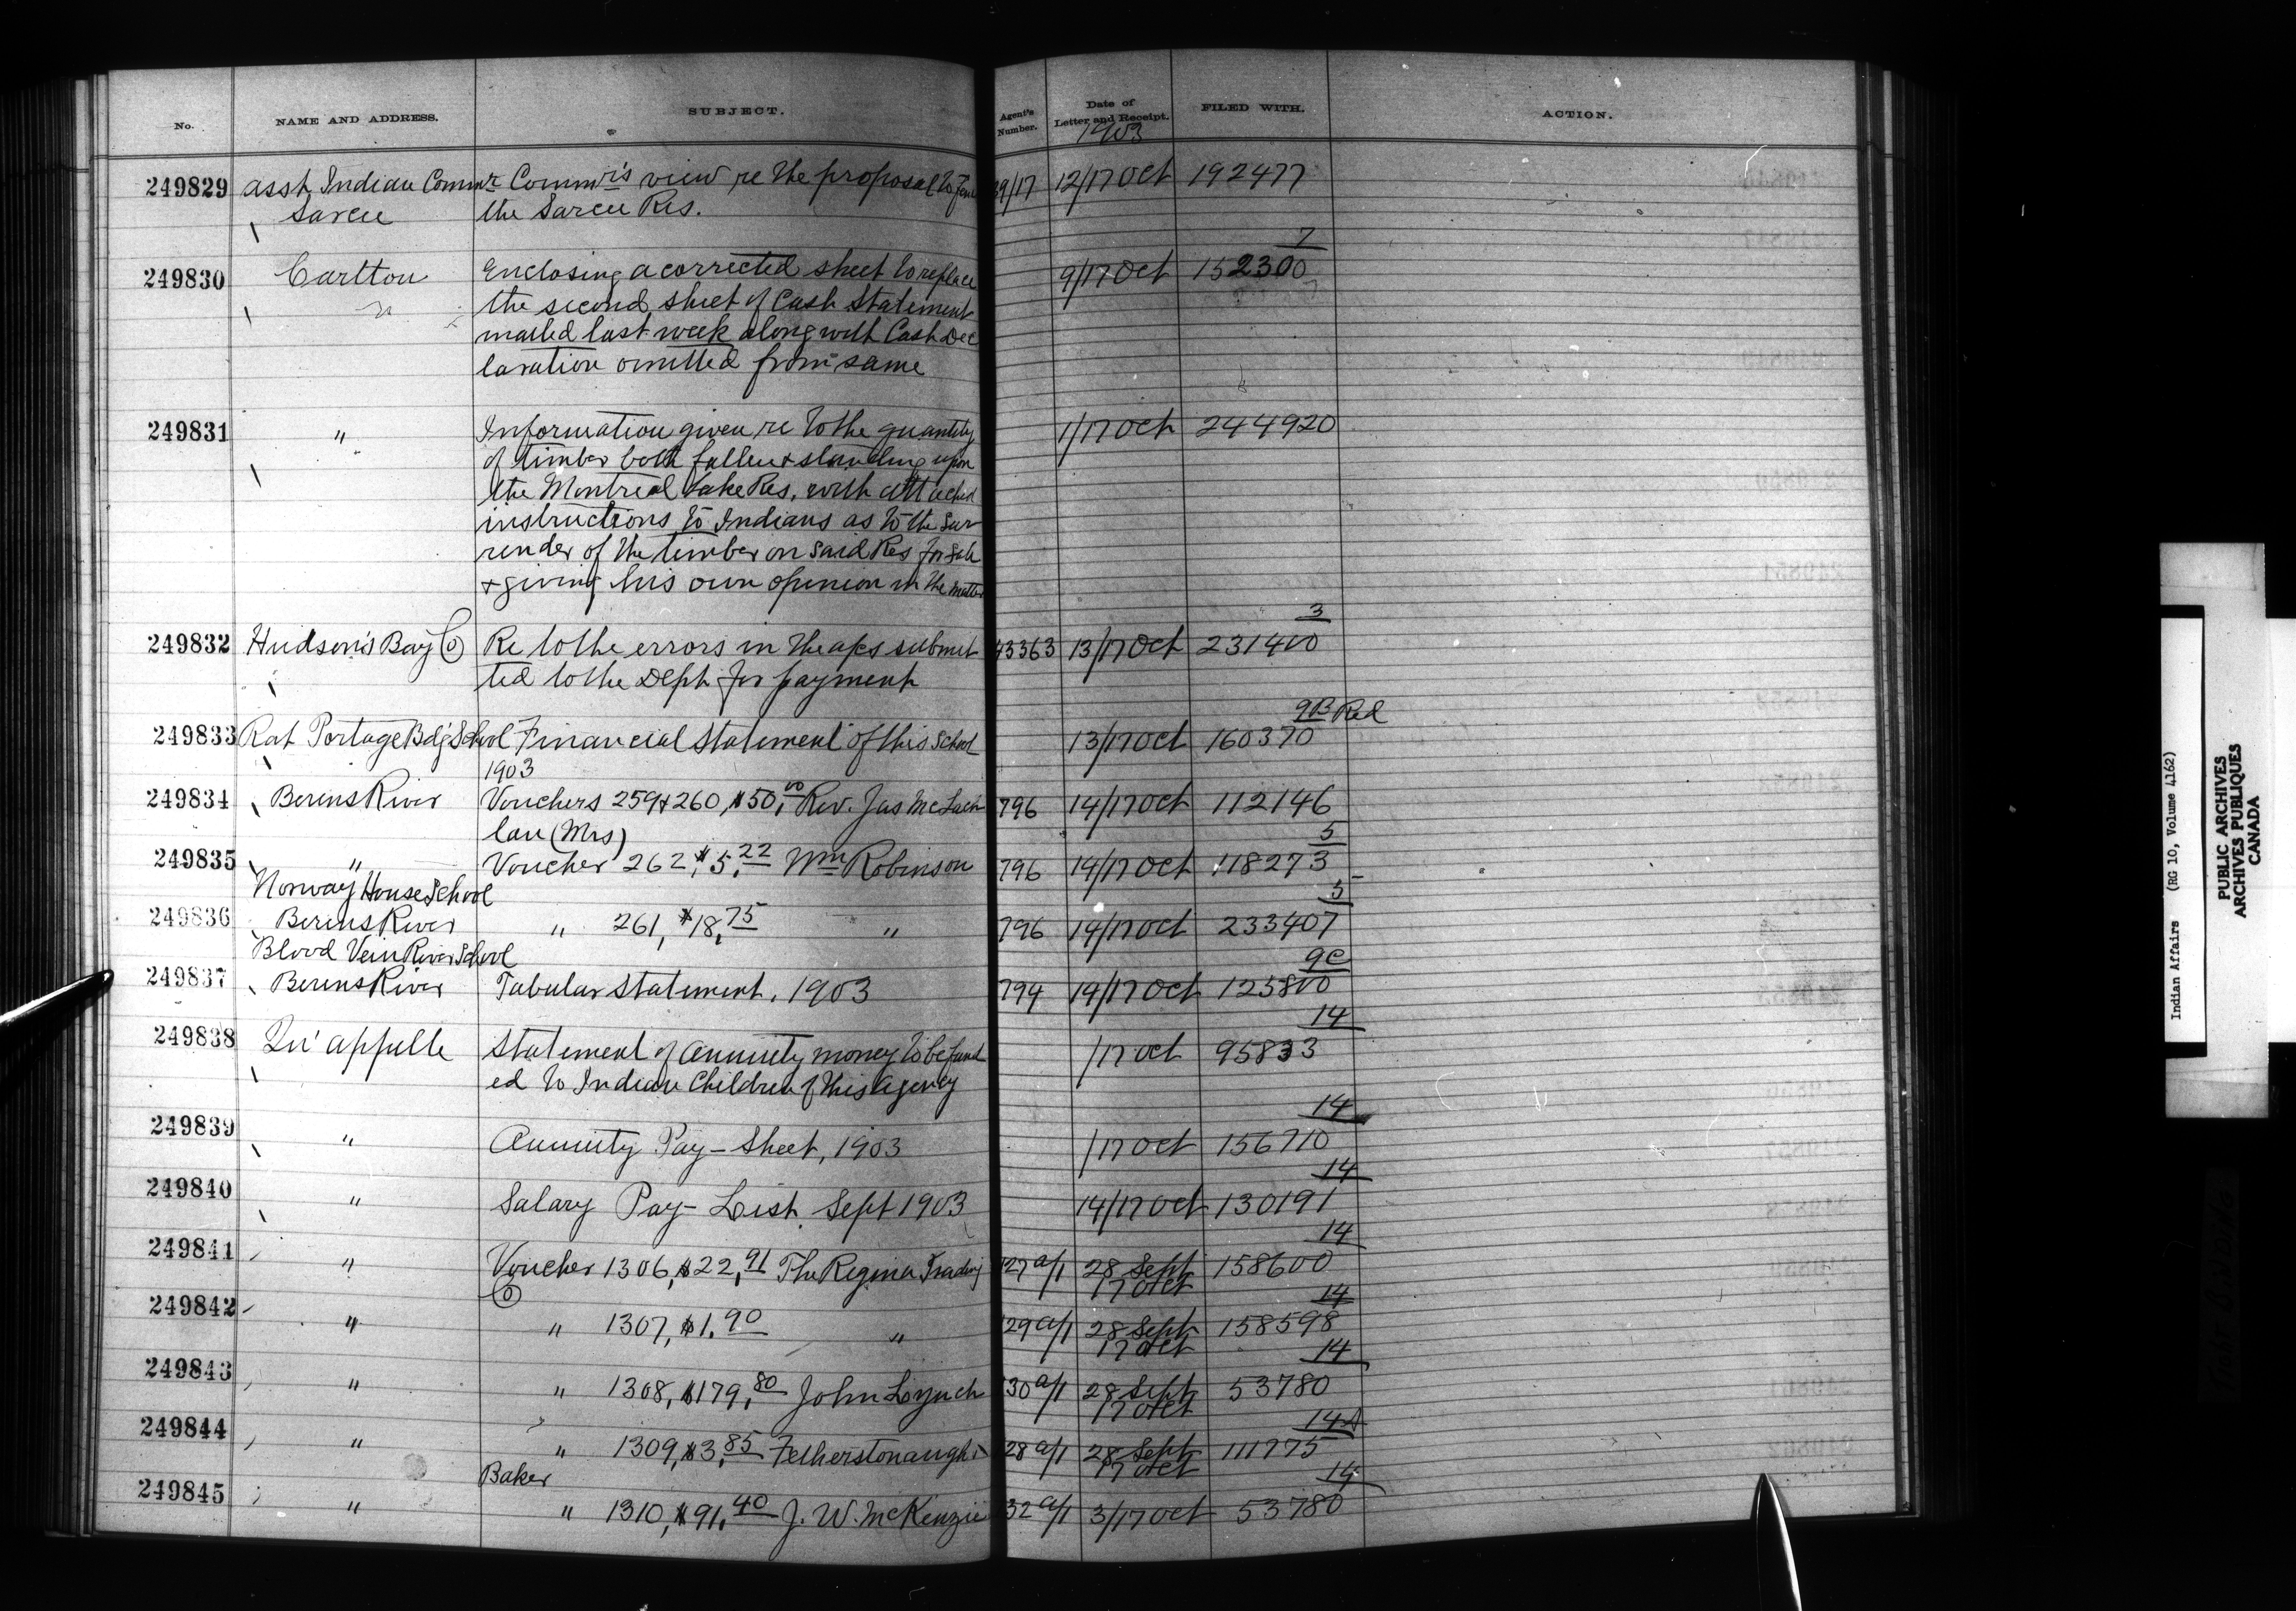 No. NAME AND ADDRESS. SUBJECT. Agent's Number. Date of Letter and Receipt. FILED WITH. ACTION.
1903
249829 Asst Indian Commr Commr's view re the proposal to fence 12/17 Oct 192477
Sarcee the Sarcee Res.
7
249830 Carlton Enclosing a corrected sheet to replace 9/17 Oct 152300
the second sheet of Cash Statement
mailed last week along with Cash Dec
laration omitted from same
249831 " Information given re to the quantity 1/17 Oct 244920
of timber both fallen & standing upon
the Montreal Lake Res. with attached
instructions to Indians as to the Sur
render of the timber on said Res for sale
& giving his own opinion in the matter
3
249832 Hudson's Bay Co Re to the errors in the a/cs submit 43363 13/17 Oct 231400
ted to the Dept for payment
9B Red
249833 Rat Portage Bdg School Financial Statement of this School 13/17 Oct 160370
1903
249834 Berens River Vouchers 259 & 260, $50.00 Rev. Jas McLach 796 14/17 Oct 112146
lan (Mrs)
5
249835 " Voucher 262, $5.22 Wm Robinson 796 14/17 Oct 118273
Norway House School
5
249836 Berens River " 261, $18.75 " 796 14/17 Oct 233407
Blood Vein River School
9C
249837 Berens River Tabular Statement, 1903 794 14/17 Oct 125800
14
249838 Qu'appelle Statement of annuity money to be fund /17 Oct 95833
ed to Indian Children of this Agency
14
249839 " Annuity Pay-Sheet, 1903 /17 Oct 156710
14
249840 " Salary Pay-List Sept 1903 14/17 Oct 130191
14
249841 " Voucher 1306, $22.91 The Regina Trading 27 a/1 28 Sept 158600
Co 17 Oct
14
249842 " " 1307, $1.90 " 29 a/1 28 Sept 158598
17 Oct
14
249843 " " 1308, $179.80 John Lynch 30 a/1 28 Sept 53780
17 Oct
14A
249844 " " 1309, $3.85 Fetherstonaugh & 28 a/1 28 Sept 111775
Baker 17 Oct
14
249845 " " 1310, $91.40 J. W. McKenzie 32 a/1 3/17 Oct 53780
Indian Affairs (RG 10, Volume 4162)
PUBLIC ARCHIVES
ARCHIVES PUBLIQUES
CANADA